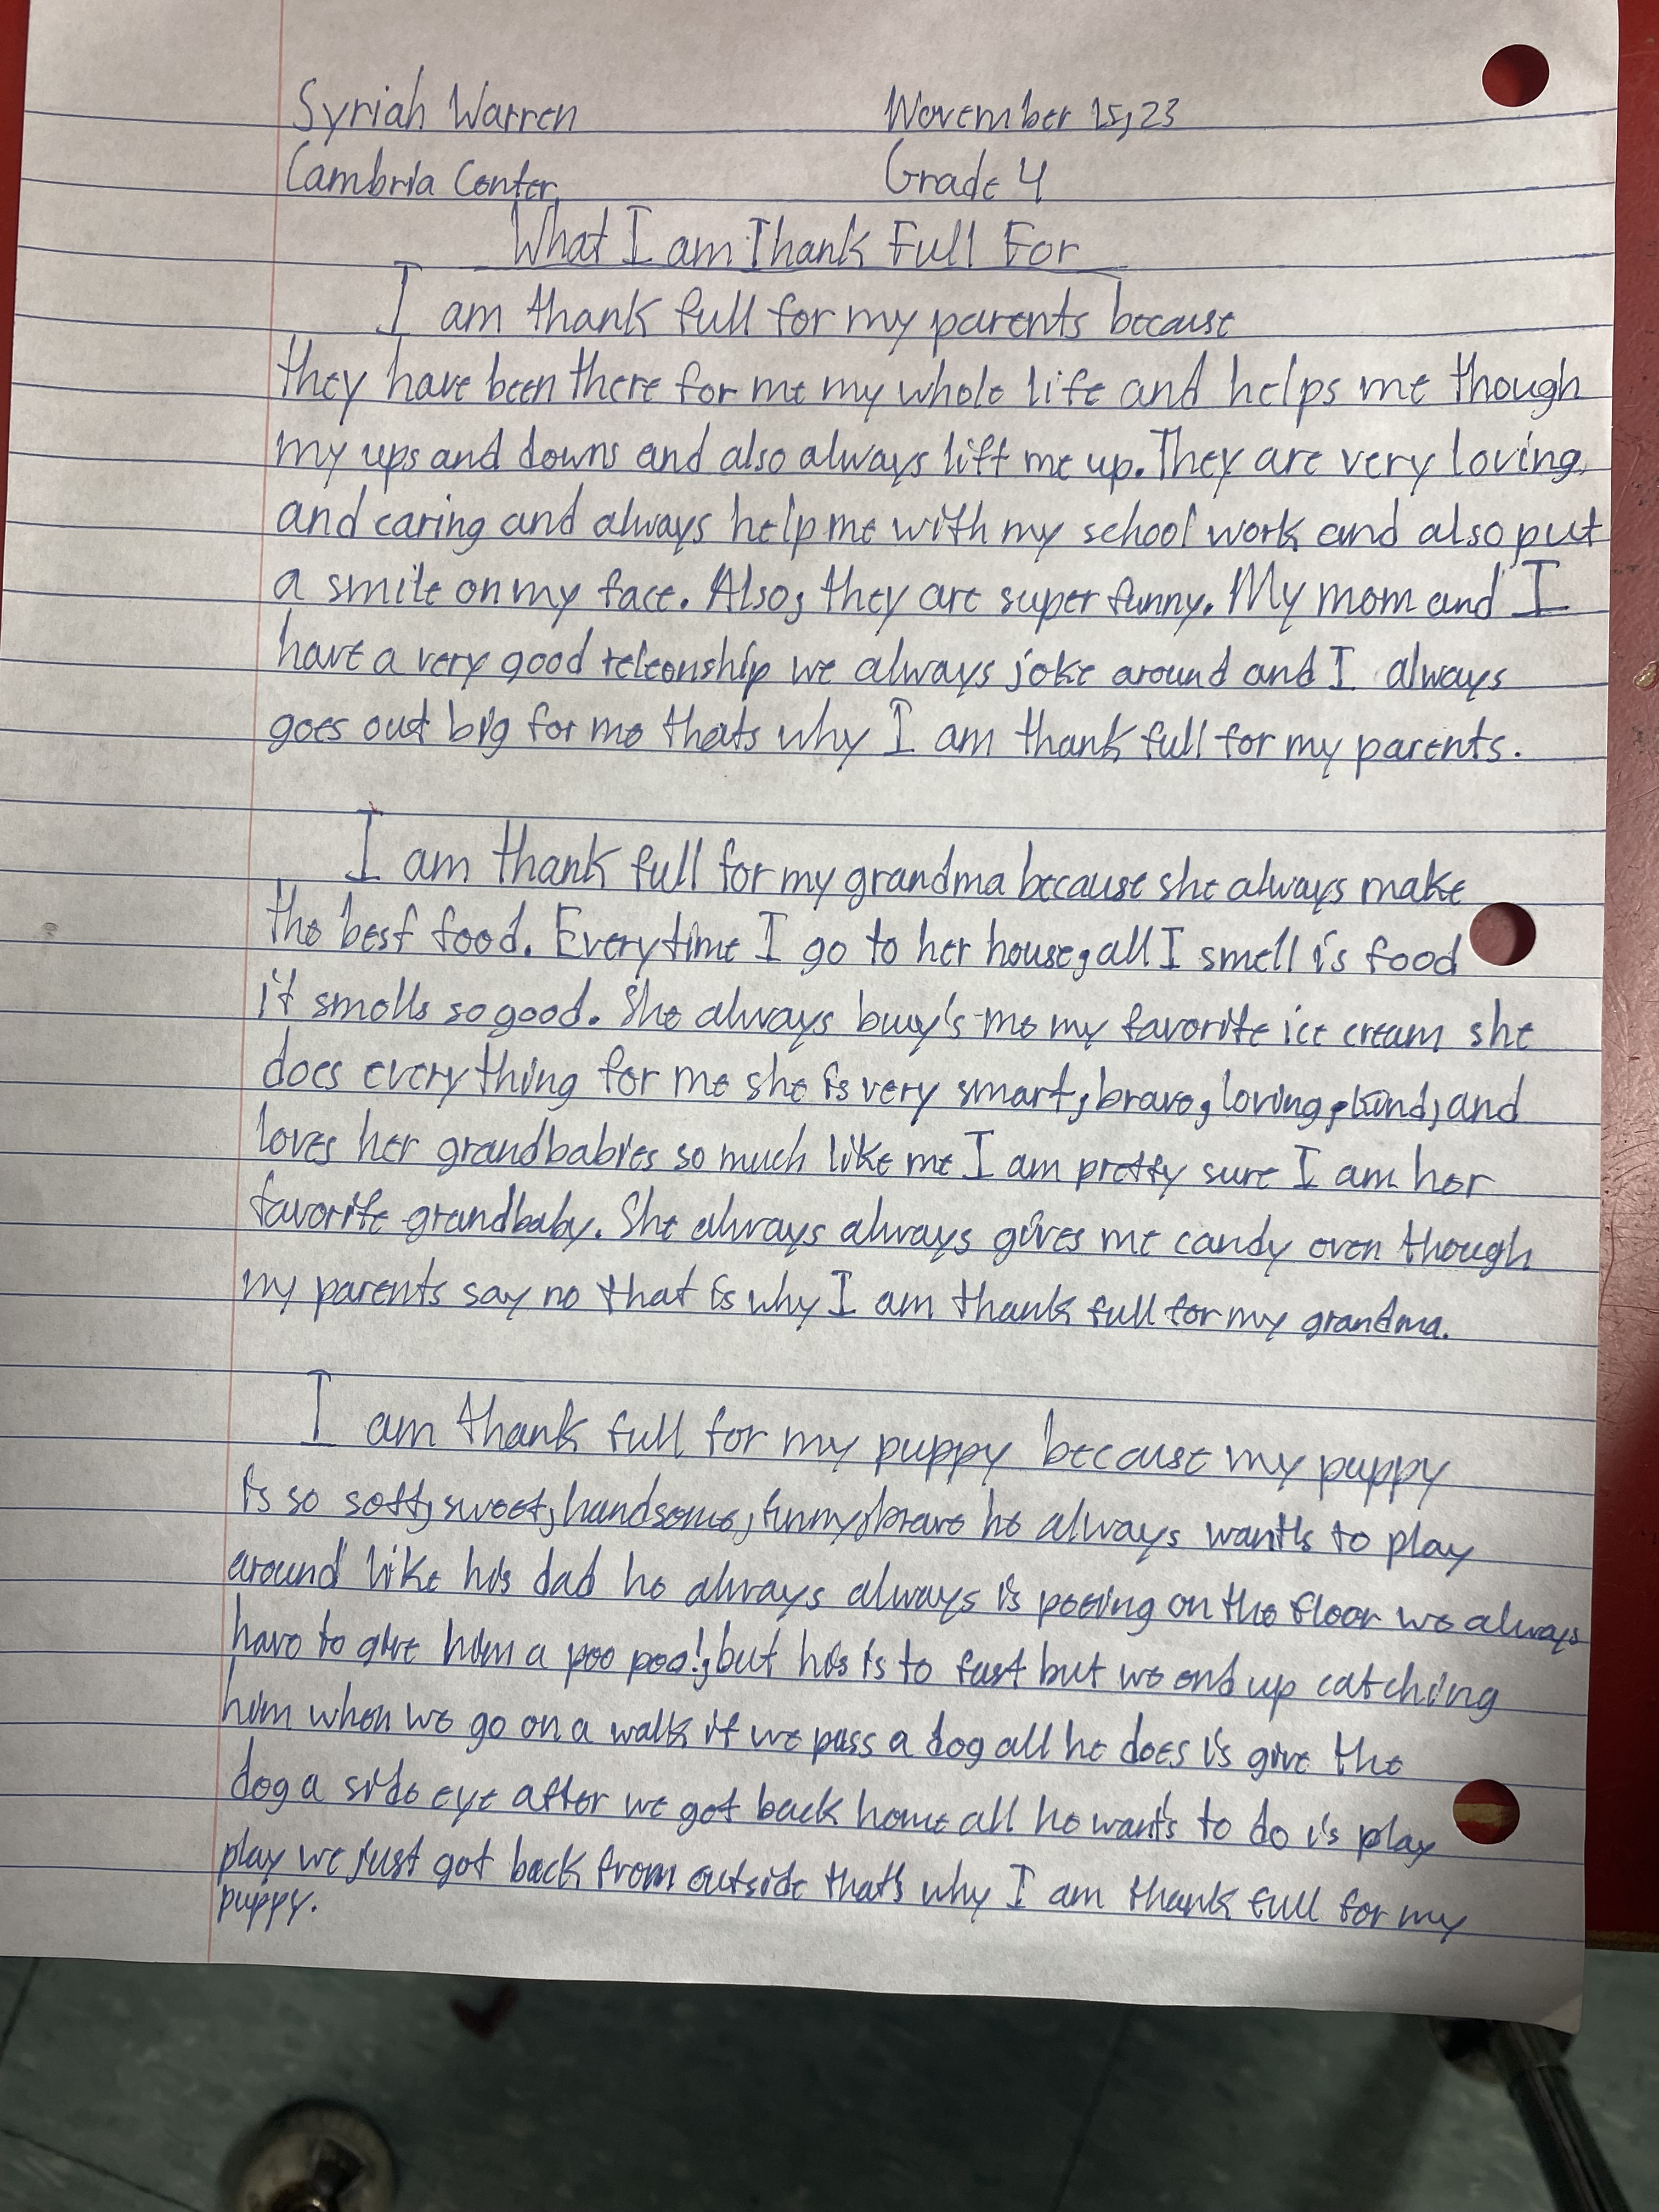 Syriah Warren November 15, 23
Cambria Center Grade 4
What I am Thank Full For
I am thank full for my parents because
they have been there for me my whole life and helps me though
my ups and downs and also always lift me up. They are very loving,
and caring and always help me with my school work and also put
a smile on my face. Also, they are super funny. My mom and I
have a very good releonship we always joke around and I always
goes out big for me thats why I am thank full for my parents.
I am thank full for my grandma because she always make
the best food. Everytime I go to her house, all I smell is food
it smells so good. She always buy's me my favorite ice cream she
does everything for me she is very smart, brave, loving, kind, and
loves her grandbabies so much like me I am pretty sure I am her
favorite grandbaby. She always always gives me candy even though
my parents say no that is why I am thank full for my grandma.
I am thank full for my puppy because my puppy
is so soft, sweet, handsome, funny, brave he always wants to play
around like his dad he always always is peeing on the floor we always
have to give him a poo poo!, but his is to fast but we end up catching
him when we go on a walk if we pass a dog all he does is give the
dog a side eye after we got back home all he wants to do is play
play we just got back from outside that's why I am thank full for my
puppy.